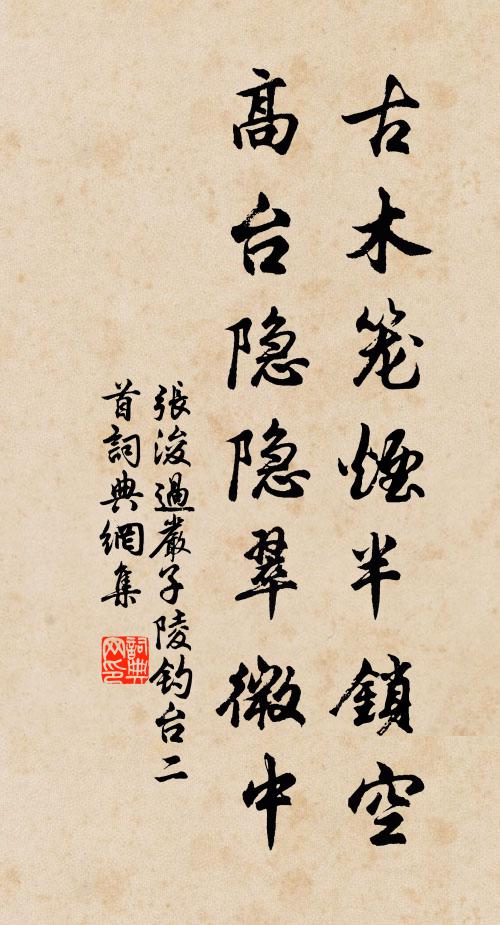 古木笼煙半鎖空
高台隐隐翠微中
張浚過嚴子陵钓台二
首詞典網集
詞典
网印